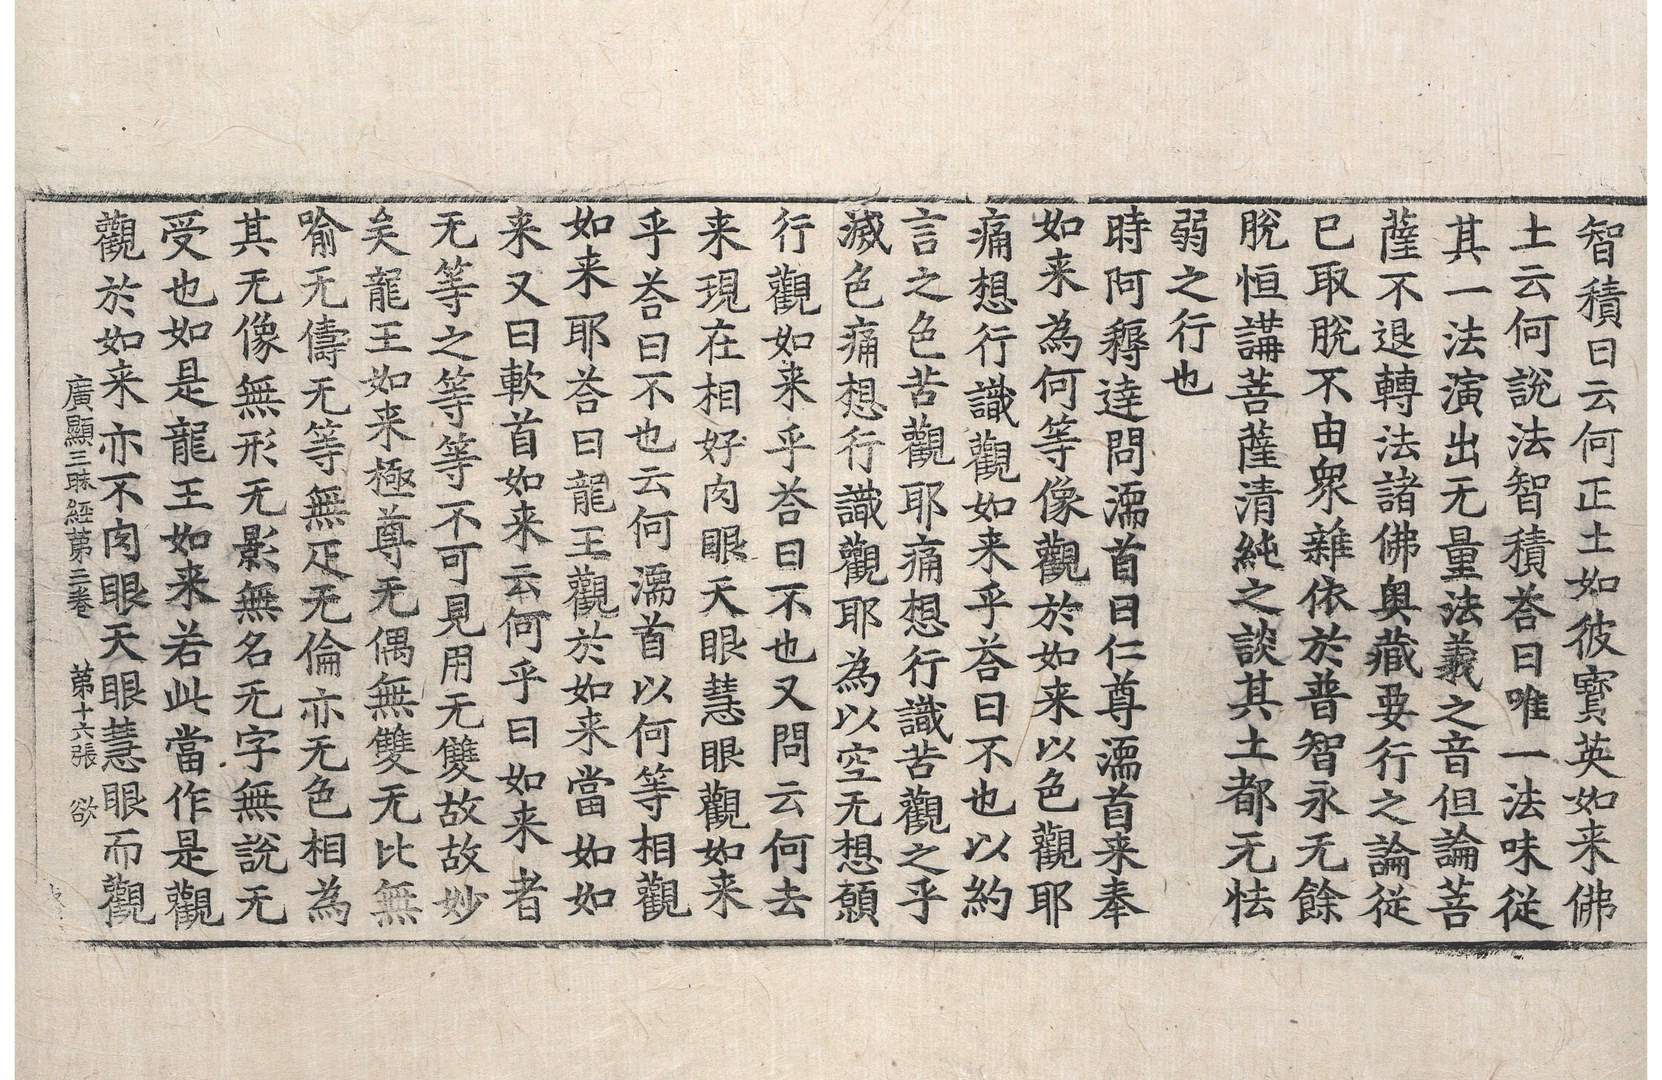 智積曰云何正土如彼寶英如来佛
土云何說法智積荅曰唯一法味従
其一法演出无量法義之音但論菩
薩不退轉法諸佛奧藏要行之論従
已取脫不由衆雜依於普智永无餘
脫恒講菩薩清純之談其土都无怯
弱之行也
時阿耨達問濡首曰仁尊濡首来奉
如来為何等像觀於如来以色觀耶
痛想行識觀如来乎荅曰不也以約
言之色苦觀耶痛想行識苦觀之乎
滅色痛想行識觀耶為以空无想願
行觀如来乎荅曰不也又問云何去
来現在相好肉眼天眼慧眼觀如来
乎荅曰不也云何濡首以何等相觀
如来耶荅曰龍王觀於如来當如如
来又曰軟首如来云何乎曰如来者
无等之等等不可見用无雙故故妙
矣龍王如来極尊无偶無雙无比無
喻无儔无等無疋无倫亦无色相為
其无像無形无影無名无字無說无
受也如是龍王如来若此當作是觀
觀於如来亦不肉眼天眼慧眼而觀
廣顯三昧經苐三卷　苐十六張　欲